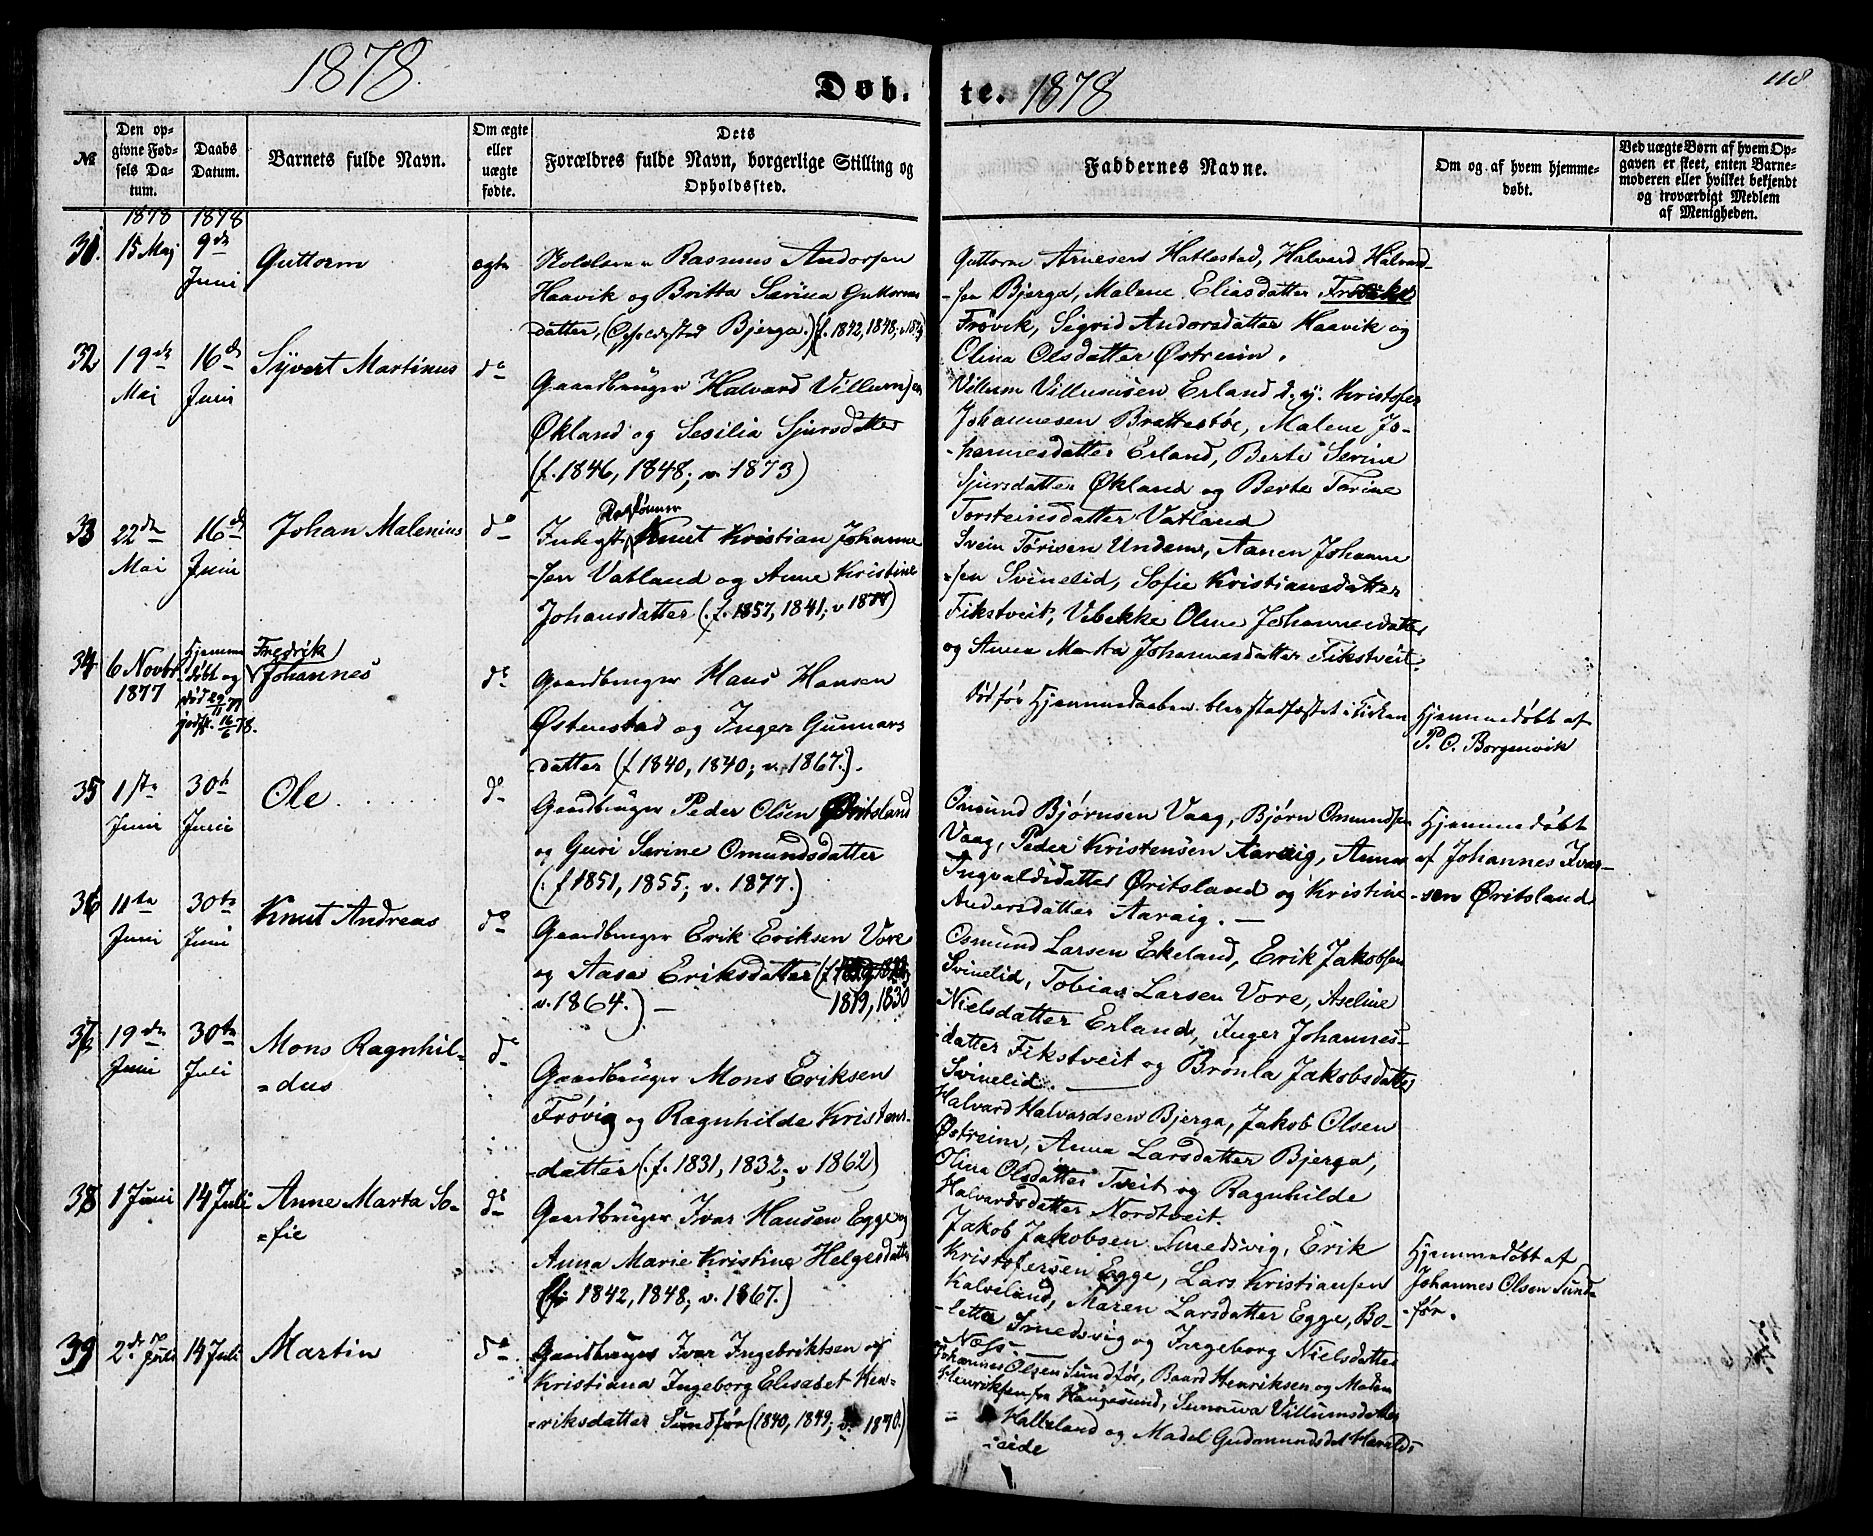 1878.
Døb-
te.
1878
118
№
Den op-
givne Fød-
sels Da-
tum.
Daabs
Datum.
Barnets fulde Navn.
Om ægte
eller
uægte
fødte.
Dets
Forældres fulde Navn, borgerlige Stilling og
Opholdssted.
Faddernes Navne.
Om og af hvem hjemme-
døbt.
Ved uægte Børn af hvem Op-
gaven er skeet, enten Barne-
moderen eller hvilket bekjendt
og troværdigt Medlem
af Menigheden.
1878 1878
31.
15 Maj
9de
Juni
Guttorm
ægte
Rasmus Andorsen
Haavik og Britta Serina Guttorms
datter, (Opholdssted Bjerga.) (f. 1842, 1848,
Guttorm Arnesen Hatlestad, Halvard Halvard-
-sen Bjerga, Malene Eliasdatter
Frøvik, Sigrid Andorsdatter Haavik og
Olina Olsdatter Østreim.
32
19de
Mai
16de
Juni
Syvert Martinus
do
Gaardbruger Halvard Villumsen
Økland og Sesilia Sjursdatter
(f. 1846, 1848; v. 1873)
Villum Villumsen Erland d. y. Kristofer
Johannesen Brattestøe, Malene Jo-
-hannesdatter Erland, Berte Serine
Sjursdatter Økland og Berte Torine
Torsteinsdatter Vatland
33
22de
Mai
16de
Juni
Johan Malenius
do
Inderst, Knut Kristian Johanne
-sen Vatland og Anne Kristine
Johansdatter (. f. 1857, 1841; v 1877)
Svein Tørisen Undem, Aanen Johanne
=sen Svinelid, Sofie Kristiansdatter
Fikstveit, Vibekke Oline Johannesdatter
og Anna Marta Johannesdatter Fikstveit.
34
6 Novbr
1877
Hjemme
døbt og
død 29/11 77
jordf. 16/6 78.
Fredrik
Johannes
do
Gaardbruger Hans Hansen
Østenstad og Inger Gunnars
datter (f 1840, 1840; v. 1867.).
Død før Hjemmedaaben blev stadfæstet i Kirken
Hjemmedøbt af
P. O. Borgenvik
35
1ste
Juni
30te
Juni
Ole
do
Gaardbruger Peder Olsen Øritsland
og Guri Serine Omundsdatter
(: f 1851, 1855; v. 1877.)
Omund Bjørnsen Vaag, Bjørn Omundsen
Vaag, Peder Kristensen Aaraig, Anna
Ingvaldsdatter Øritsland og Kristine
Andersdatter Aaraig. —
Hjemmedøbt
af Johannes Ivar-
-sen Øritsland
36
11te
Juni
30te
Juni
Knut Andreas
do
Gaardbruger Erik Eriksen Vore
og Aasa Eriksdatter (f
v. 1864.) — 1819, 1830
Osmund Larsen Ekeland, Erik Jakobsen
Svinelid, Tobias Larsen Vore, Aseline
Nielsdatter Erland, Inger Johannes-
-datter Fikstveit og Brønla Jakobsdatter
Svinelid.
37
19de
Juni
30te
Juli
Mons Ragnhil-
=dus
do
Gaardbruger Mons Eriksen
Frøvig og Ragnhilde Kristens-
-datter (. f. 1831, 1832; v 1862)
Halvard Halvardsen Bjerga, Jakob Olsen
Østreim, Anna Larsdatter Bjerga,
Olina Olsdatter Tveit og Ragnhilde
Halvardsdatter Nordtveit.
38
1 Juni
14 Juli
Anne Marta So-
=fie
do
Gaardbruger Ivar Hansen Egge og
Anna Marie Kristine Helgesdatter
(f: 1842, 1848; v. 1867.)
Jakob Jakobsen Smedsvig, Erik
Kristofersen Egge, Lars Kristiansen
Kalveland, Maren Larsdatter Egge, Bo-
-letta Smedsvig og Ingeborg Nielsdatter
Næs.
Hjemmedøbt af
Johannes Olsen Sund-
-før.
39
2de Juli
14 Juli
Martin
do
Gaardbruger Ivar Ingebriktsen og
Kristiana Ingeborg Elisabet Hen-
-riksdatter Sundfør (1840, 1849; v. 1870.)
Johannes Olsen Sundfør, Baard Henriksen og Maden
Henriksen fra Haugesund, Villumsdatter
Halkeland og Madel Gudmundsdat Haralds-
-eide